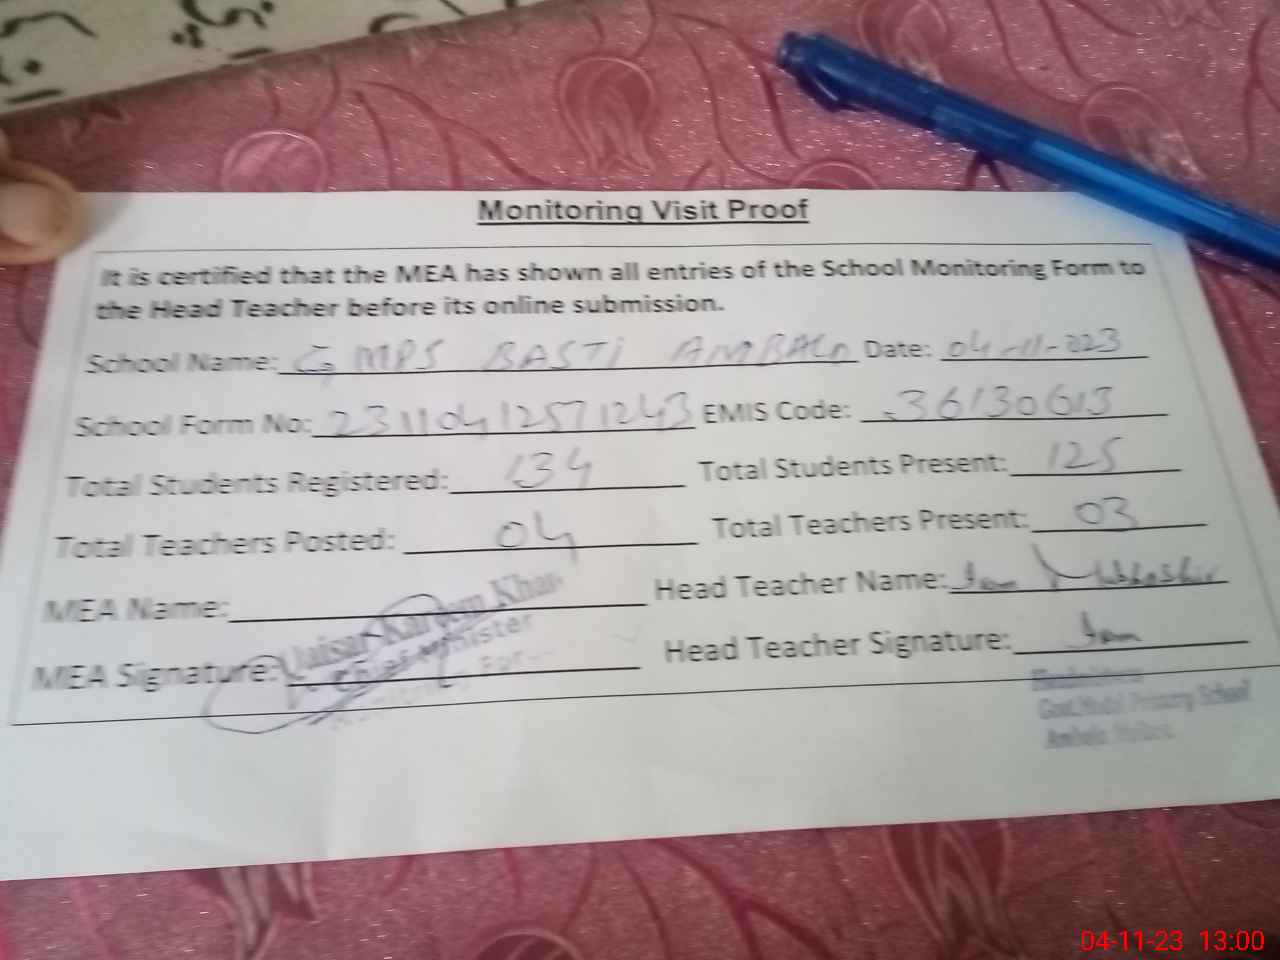 Monitoring Visit Proof
It is certified that the MEA has shown all entries of the School Monitoring Form to
the Head Teacher before its online submission.
School Name: G MPS BASTI AMBALA Date: 04-11-223
School Form No: 2311041257 1243 EMIS Code: 36130613
Total Students Registered: 134 Total Students Present: 125
Total Teachers Posted: 04 Total Teachers Present: 03
MEA Name: Head Teacher Name:
Kareem Khan
MEA Signature: Head Teacher Signature:
Chief Minister
Govt. Model Primary School
04-11-23 13:00